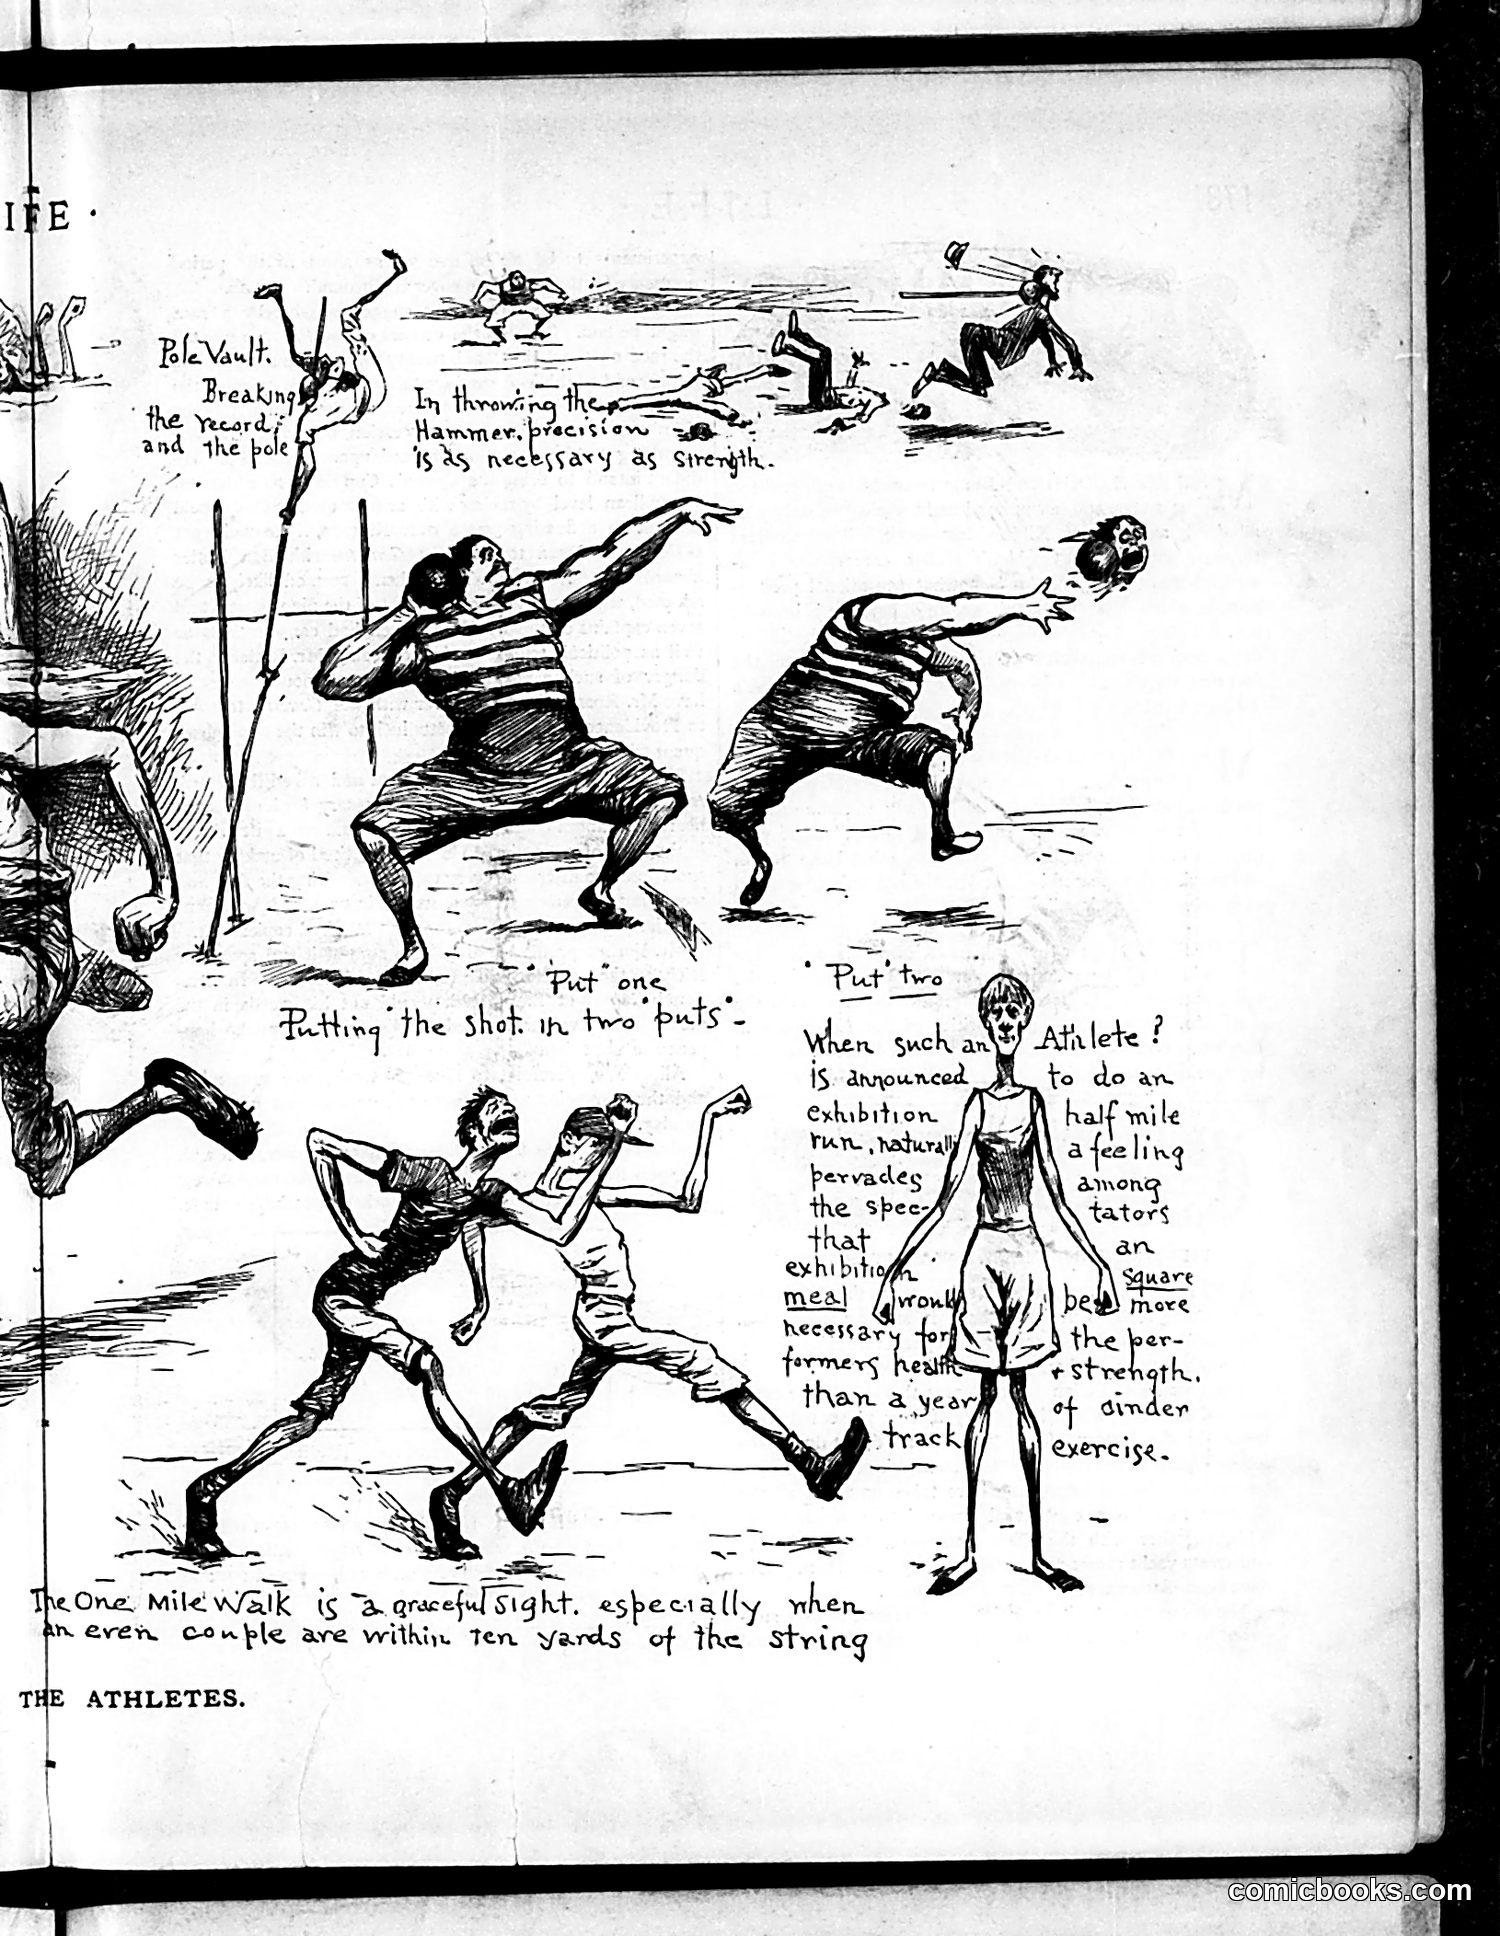 IFE ·
Pole Vault.
Breaking
the record,
and the pole
In throwing the
Hammer, precision
is as necessary as strength.
"Put" one
Putting the shot. in two "puts".-
"Put" two
When such an Athlete?
is announced to do an
exhibition half mile
run, naturally a feeling
pervades among
the spec- tators
that an
exhibition square
meal would be more
necessary for the per-
formers health + strength.
than a year of cinder
track exercise.
The One Mile Walk is a graceful sight. especially when
an even couple are within ten yards of the string
THE ATHLETES.
comicbooks.com